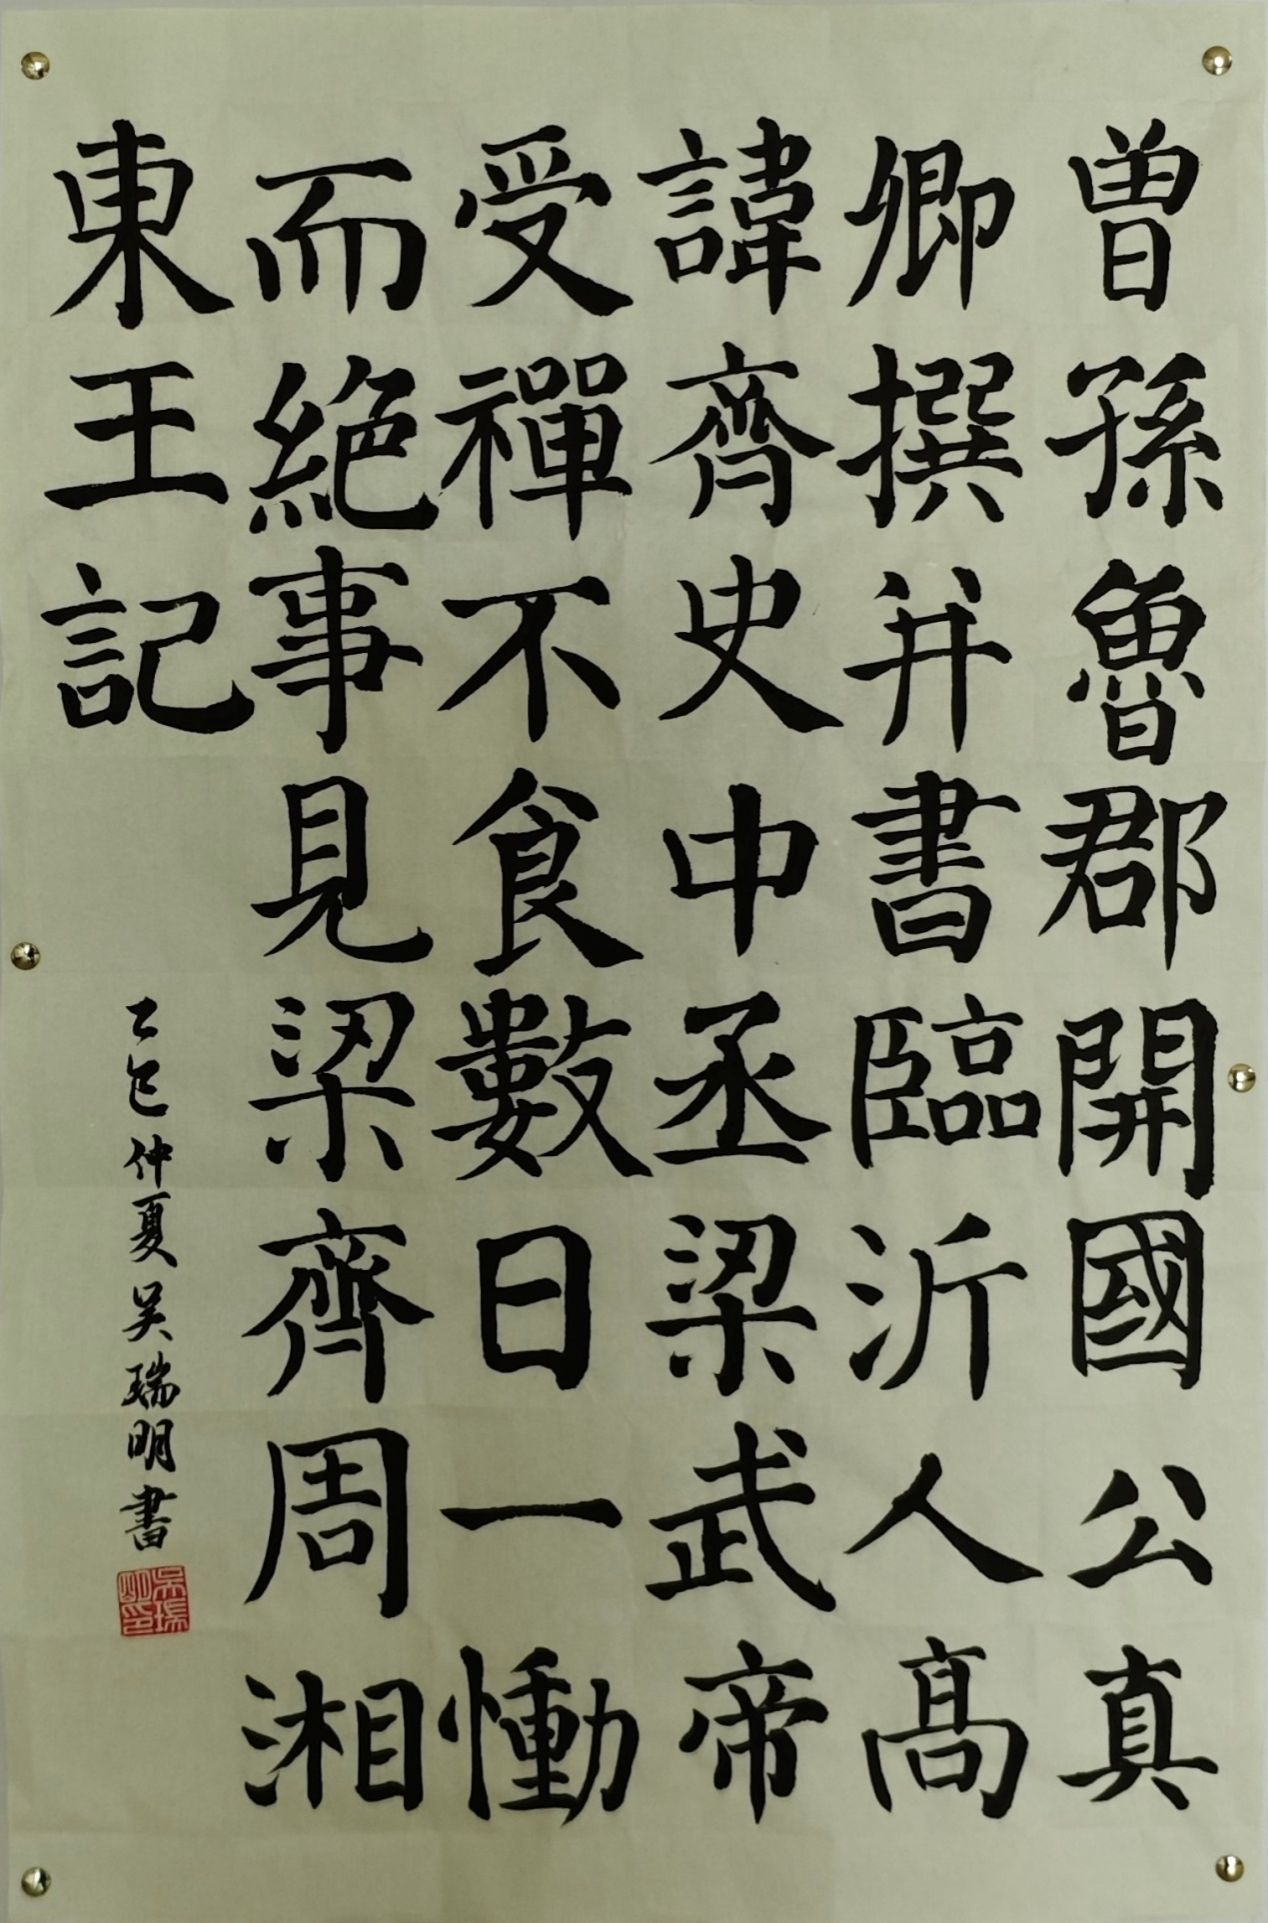 曾孫魯郡開國公真
卿撰并書臨沂人高
諱齊史中丞梁武帝
受禪不食數日一慟
而絕事見梁齊周湘
東王記
乙巳仲夏吴瑞明書
吴瑞明印